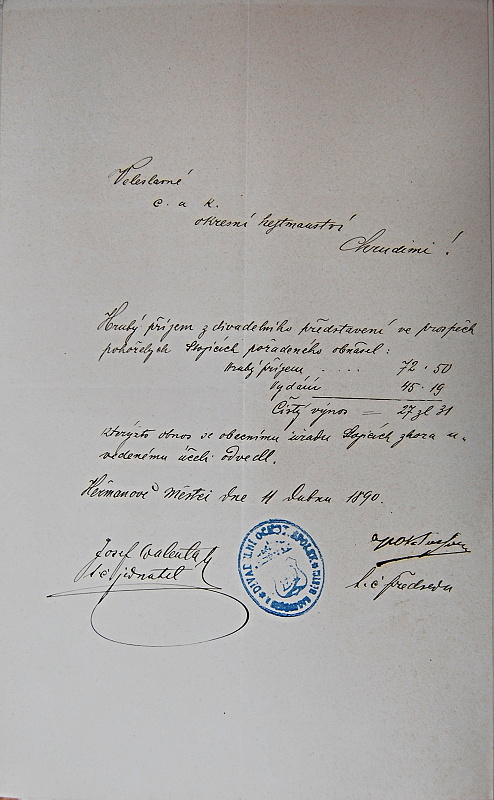 Veleslavné
c. a k.
okresní hejtmanství
Chrudimi!
Hrubý příjem z divadelního představení ve prospěch
pohořelých Stojících pořádeného obnášel:
Hrubý příjem .... 72.50
Vydání 45.19
Čistý výnos = 27 zl 31
kterýžto obnos se obecnímu úřadu Stojících shora u-
vedenému účeli odvedl.
Heřmanově Městci dne 11 Dubna 1890.
Josef Valenta
t. č. jednatel
t. č. předseda
DIVADELNÍ OCHOT. SPOLEK